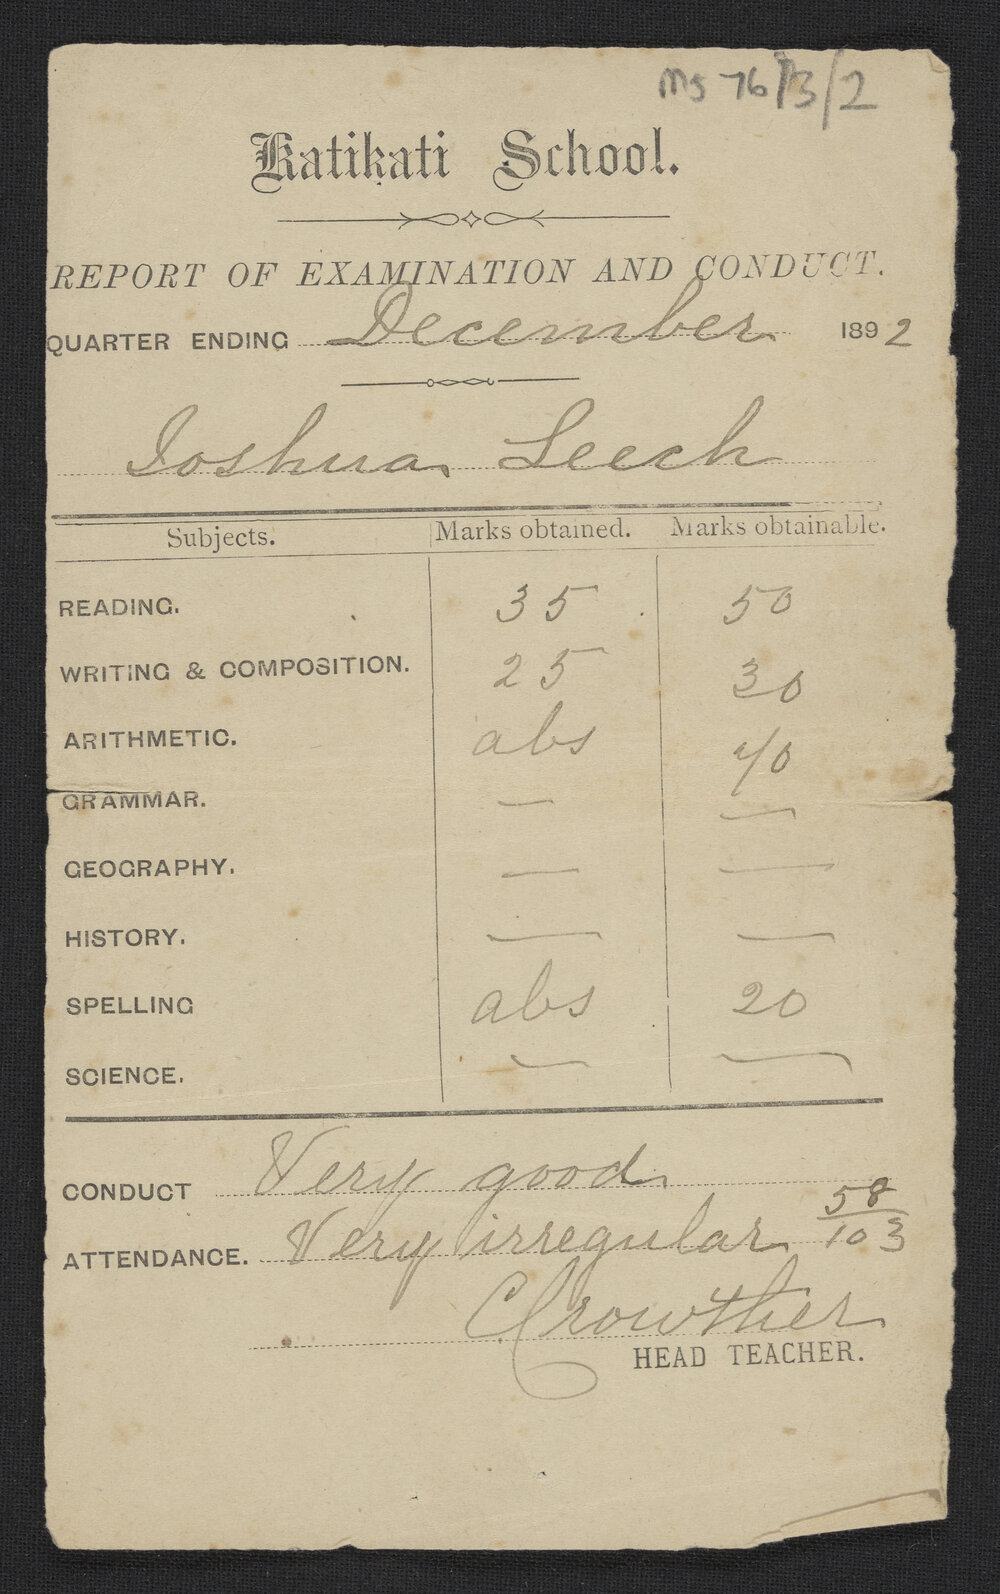 Ms 76/3/2
Katikati School.
REPORT OF EXAMINATION AND CONDUCT.
QUARTER ENDING December 1892
Joshua Leech
Subjects. Marks obtained. Marks obtainable.
READING. 35 50
WRITING & COMPOSITION. 25 30
ARITHMETIC. abs 40
GRAMMAR. — —
GEOGRAPHY. — —
HISTORY. — —
SPELLING abs 20
SCIENCE. — —
CONDUCT Very good
ATTENDANCE. Very irregular 58/103
C Crowther
HEAD TEACHER.